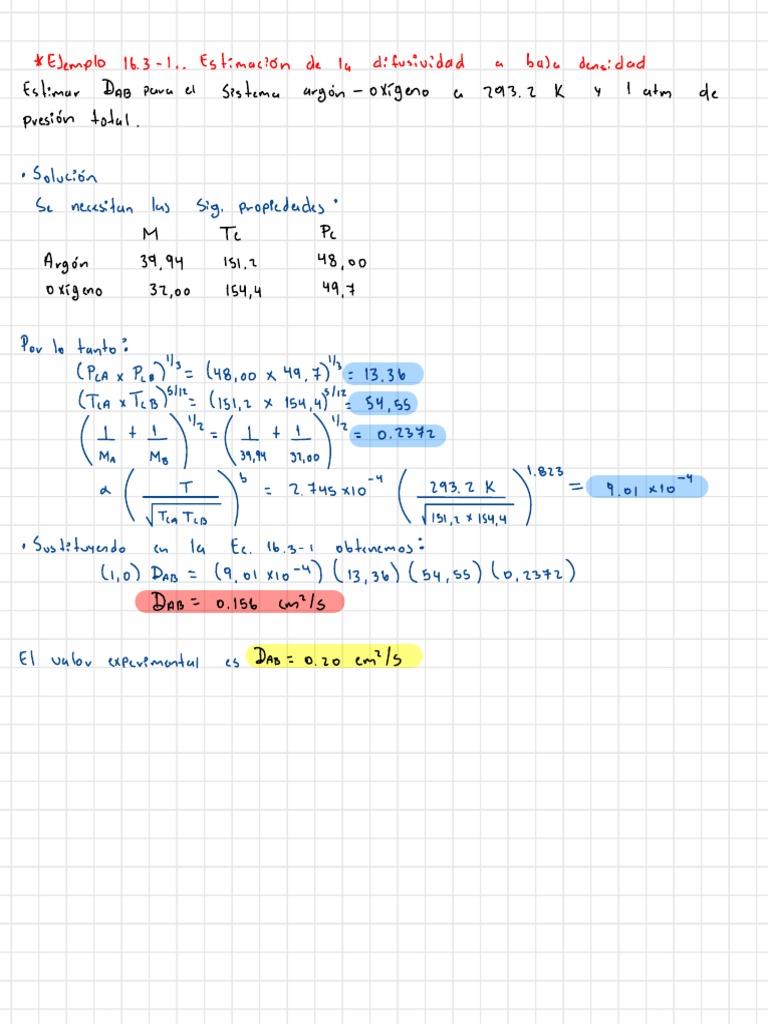 *Ejemplo 16.3-1.. Estimación de la difusividad a baja densidad
Estimar D_AB para el sistema argón-oxígeno a 293.2 K y 1 atm de
presión total.
• Solución
Se necesitan las sig. propiedades:
M Tc Pc
Argón 39,94 151,2 48,00
oxígeno 32,00 154,4 49,7
Por lo tanto:
(P_cA x P_cB)^1/3 = (48,00 x 49,7)^1/3 = 13,36
(T_cA x T_cB)^5/12 = (151,2 x 154,4)^5/12 = 54,55
(1/M_A + 1/M_B)^1/2 = (1/39,94 + 1/32,00)^1/2 = 0.2372
α (T/√(T_cA T_cB))^b = 2.745x10^-4 (293.2 K/√(151,2 x 154,4))^1.823 = 9.01 x10^-4
• Sustituyendo en la Ec. 16.3-1 obtenemos:
(1,0) D_AB = (9,01 x10^-4) (13,36) (54,55) (0,2372)
D_AB = 0.156 cm²/s
El valor experimental es D_AB = 0.20 cm²/s